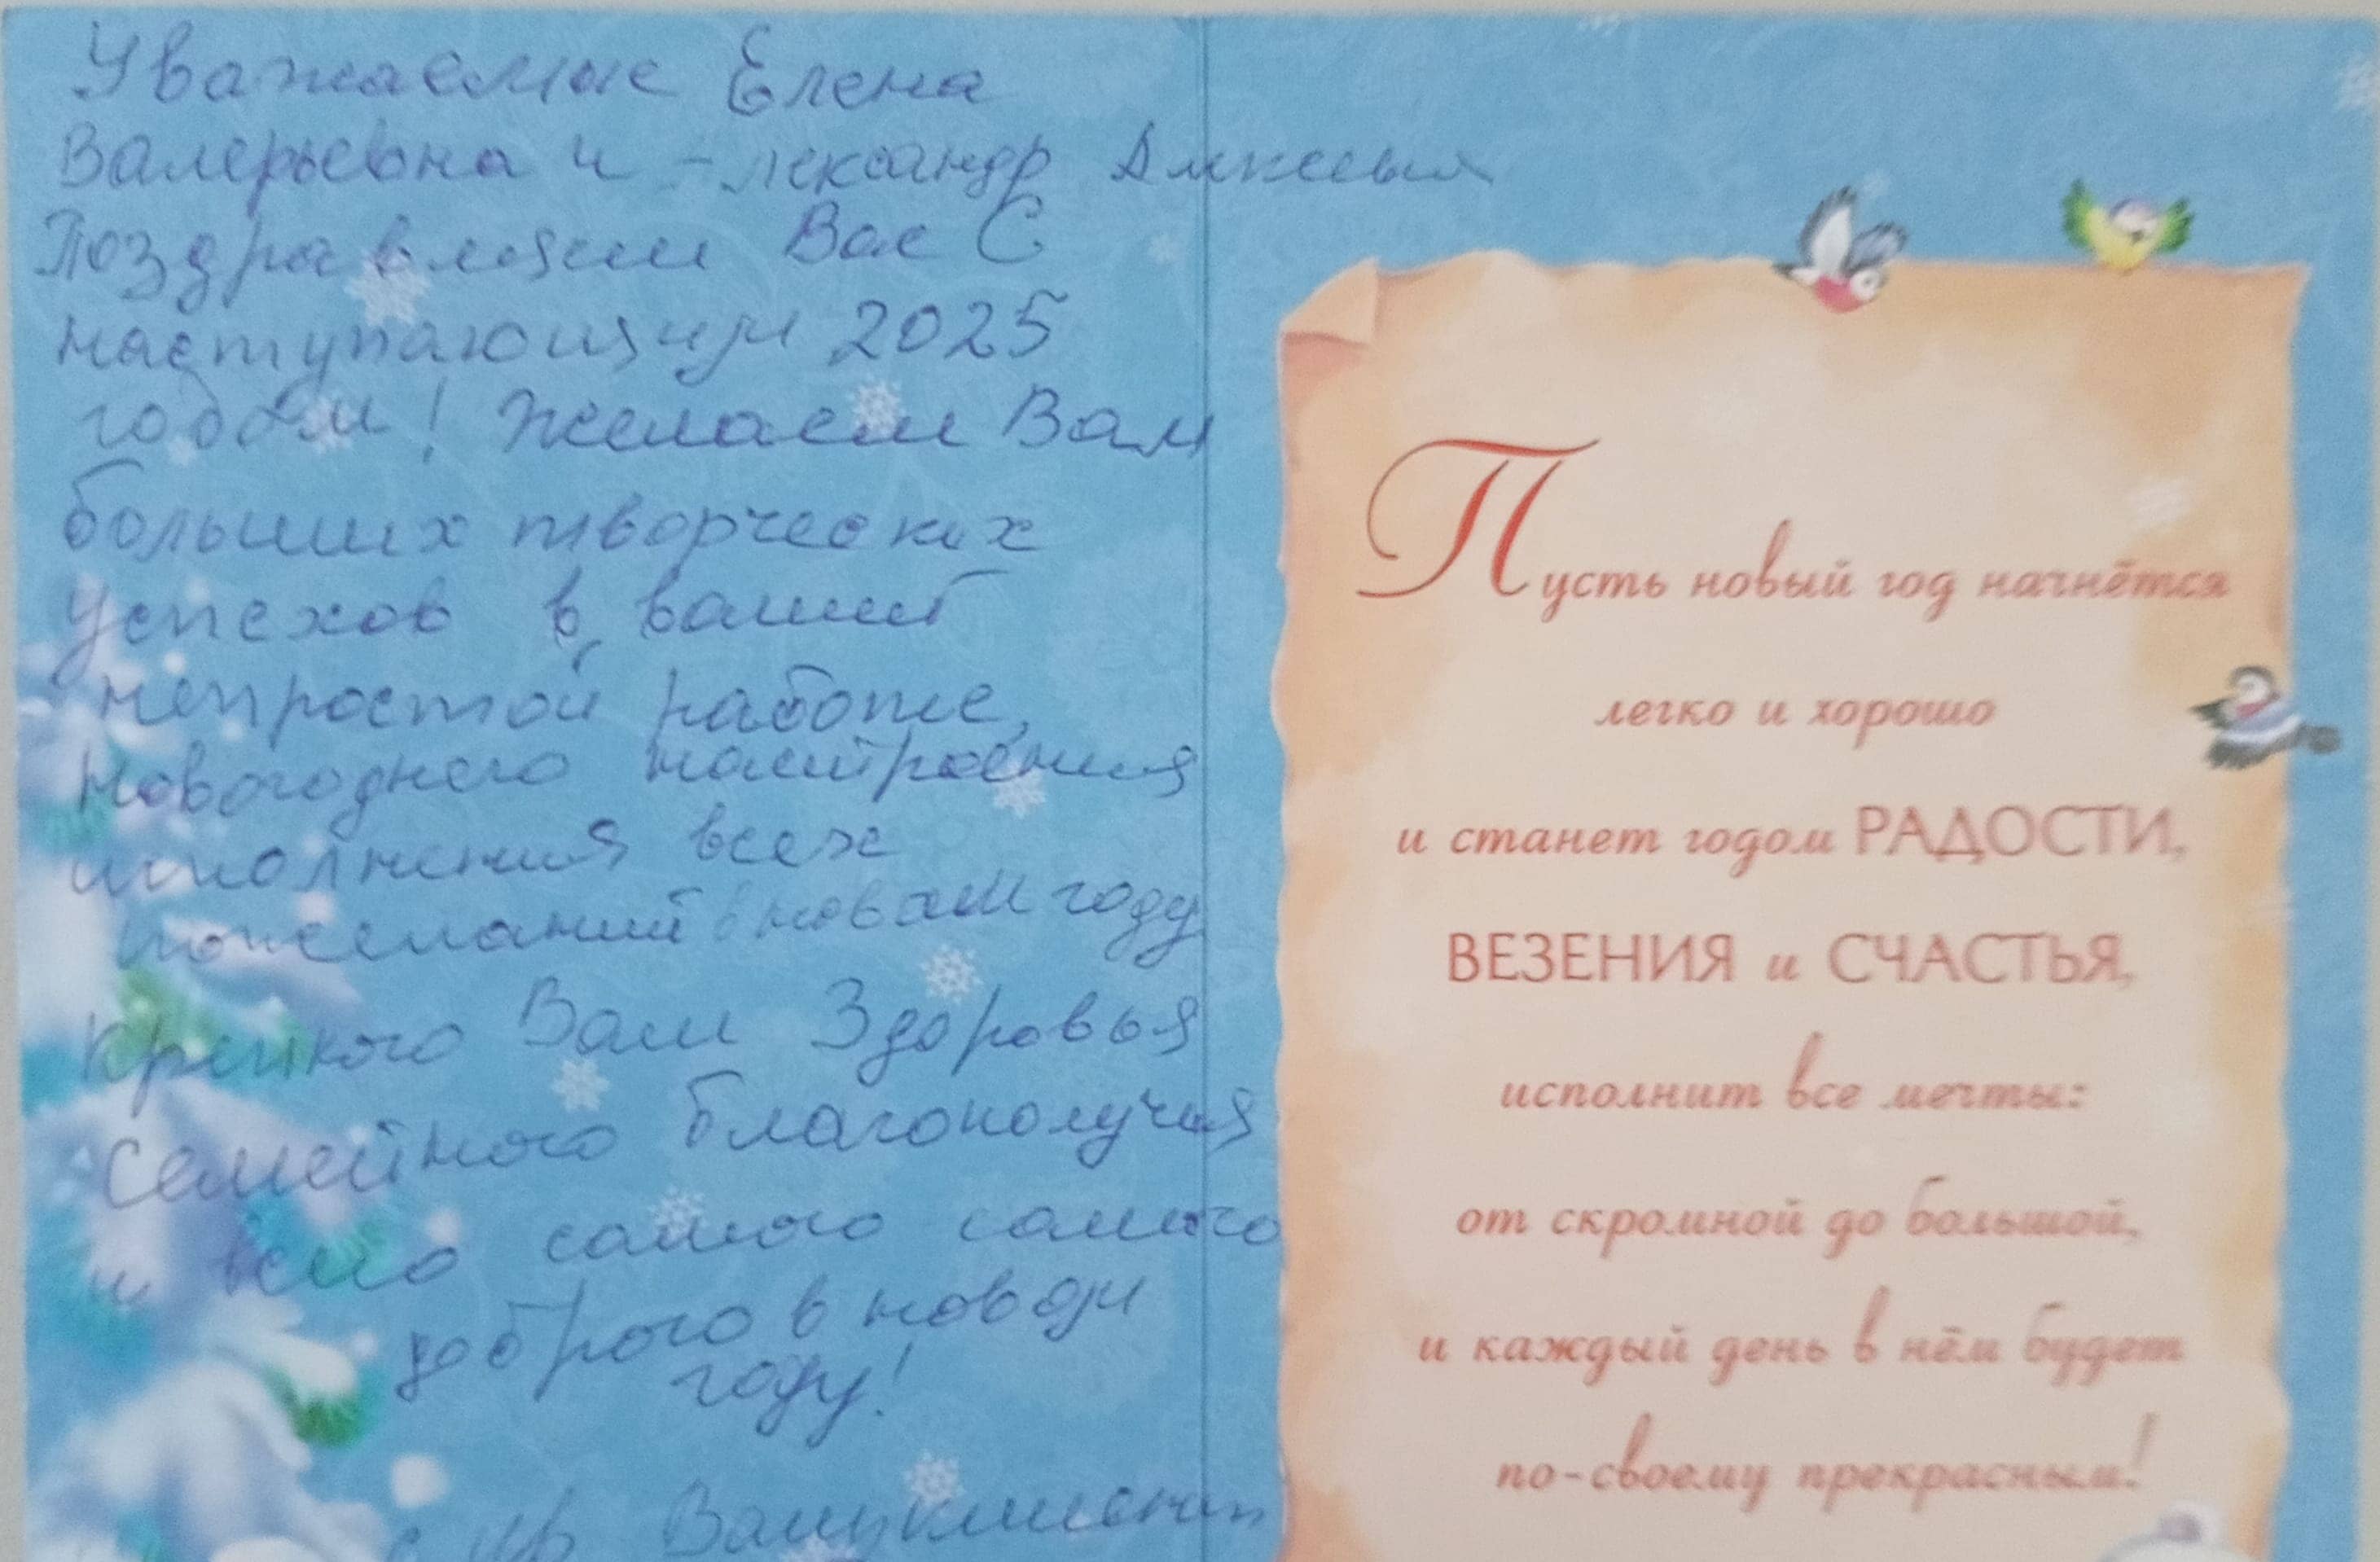 Уважаемые Елена
Валерьевна и Александр
Поздравляем Вас С
наступающим 2025
годом! Желаем Вам
больших творческих
успехов в вашей
непростой работе,
Новогоднего настроения
исполнения всех
пожеланий в новам году
крепкого Вам Здоровья
Семейного благополучия
и всего самого самого
доброго в новом
году!
Пусть новый год начнётся
легко и хорошо
и станет годом РАДОСТИ,
ВЕЗЕНИЯ и СЧАСТЬЯ,
исполнит все мечты:
от скромной до большой,
и каждый день в нём будет
по-своему прекрасным!